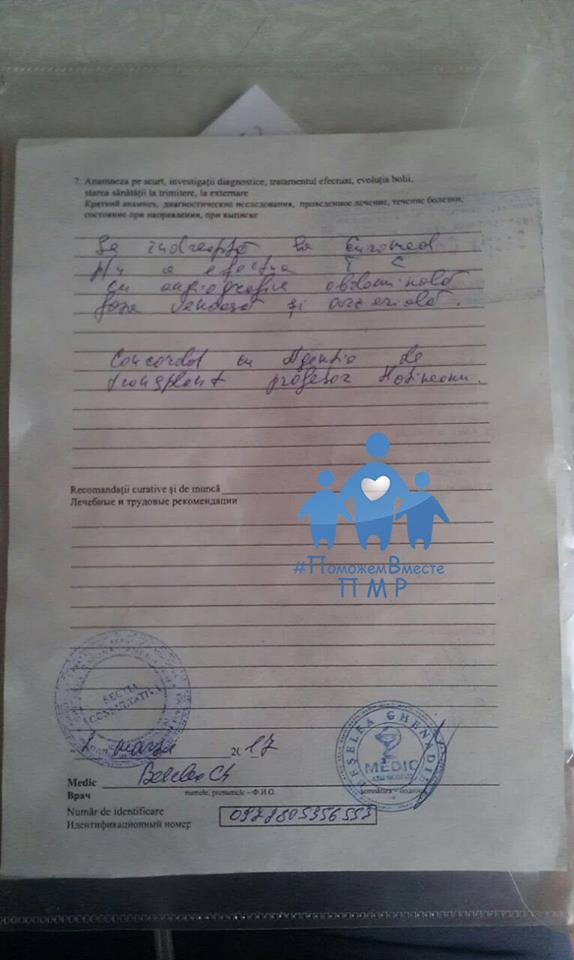 7. Anamneza pe scurt, investigații diagnostice, tratamentul efectuat, evoluția bolii,
starea sănătății la trimitere, la externare
Краткий анамнез, диагностические исследования, проведенное лечение, течение болезни,
состояние при направлении, при выписке
Se îndreaptă la Euromed
p/u a efectua T C
cu angiografie abdominală
faza venoasă și arterială.
Concordat cu Agenția de
transplant profesor Hotineanu.
Recomandații curative și de muncă
Лечебные и трудовые рекомендации
#ПоможемВместе
ПМР
SECȚIA
CONSULTATIVĂ
2017
GHENADIE
MEDIC
Medic
numele, prenumele – Ф.И.О.
Врач
Număr de identificare
Идентификационный номер